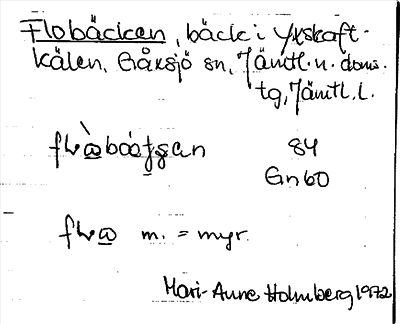 Flobäcken, bäck i Yxskaft-
kälen, Gåxsjö sn, Jämtl. n. doms.
tg, Jämtl. l.
84
Gn 60
m. = myr.
Mari-Anne Holmberg 1972